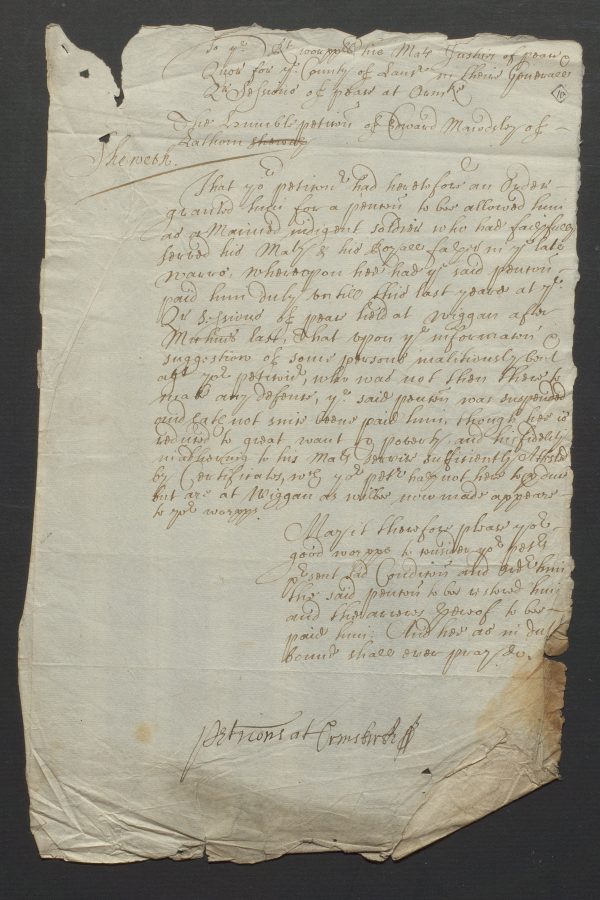 To ye Rt worppll his Maties Justices of peace &
Quor for ye County of Lancr in their Generall
Qr Sessions of peace at Ormsk
The Humble peticon of Edward Mawdsley of
Lathom sheweth
Sheweth.
That yor peticonr had heretofore an Order
granted him for a pencon to bee allowed him
as a Maimed indigent soldier who had faithfully
served his Maty & his Royall father in ye late
warrs, whereupon hee had ye said pencon
paid him duly untill this last yeare at ye
Qr Sessions of peace held at Wiggan after
Michmas last, that upon ye informacon &
suggestion of some persons malitiously bent
agt yor peticonr, who was not then there to
make any defense, ye said pencon was suspended
and hath not since beene paid him, though hee is
reduced to great want & poverty, and his fidelity
in adhering to his Maties service sufficiently Attested
by Certificates, wch yor petr hath not here to produce
but are at Wiggan as wilbe now made appeare
to yor worpps
May it therefore please yor
good worpps to consider yor petrs
present sad Condicon and order him
the said pencon to be restored him
and the arreres thereof to be
paid him. And hee as in duty
bound shall ever pray &c.
petitions at Ormskirk